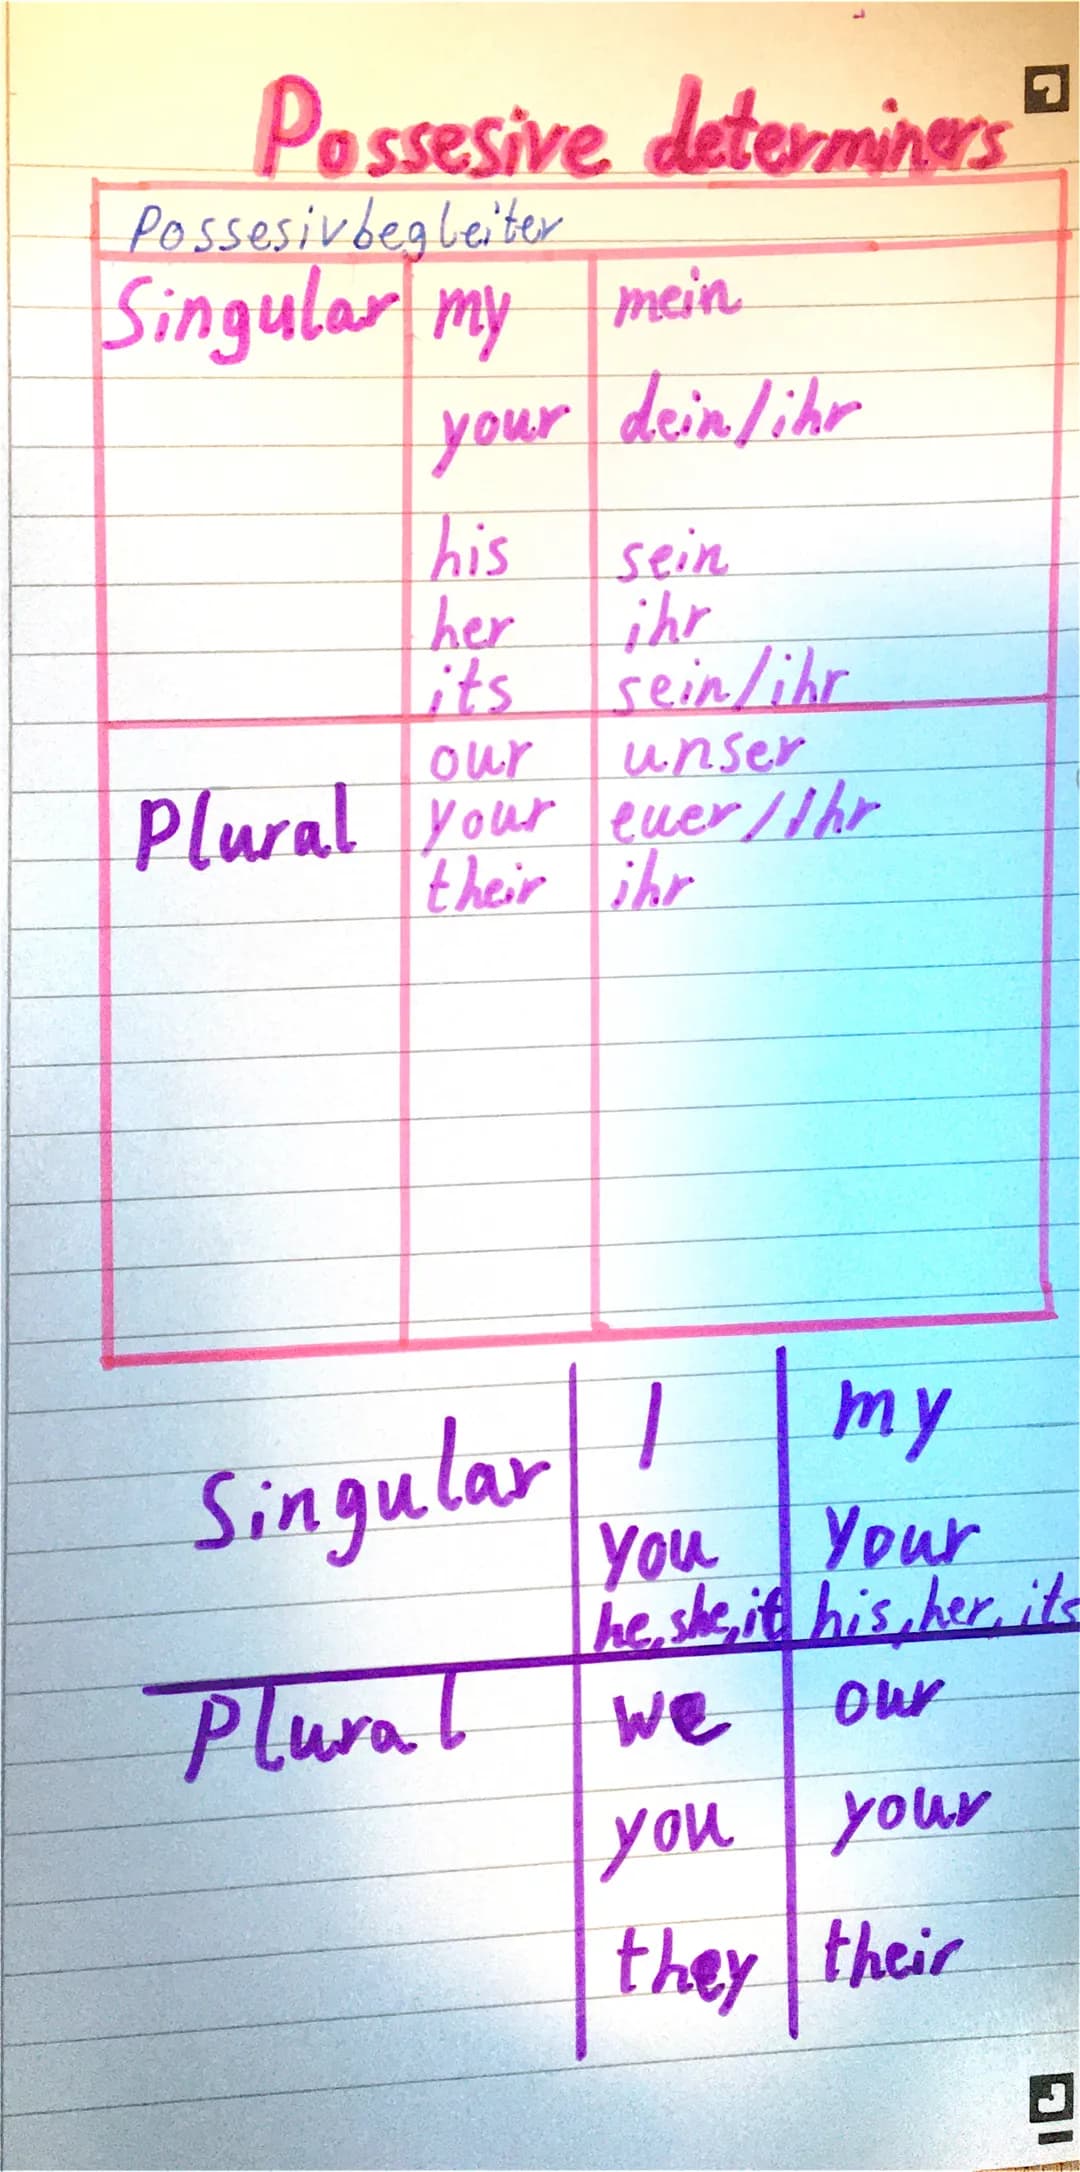 Possesive determiners
Possesivbegleiter
Singular my mein
your dein/ihr
his sein
her ihr
its sein/ihr
our unser
Plural your euer/Ihr
their ihr
I my
Singular
you your
he, she, it his, her, its
Plural we our
you your
they their